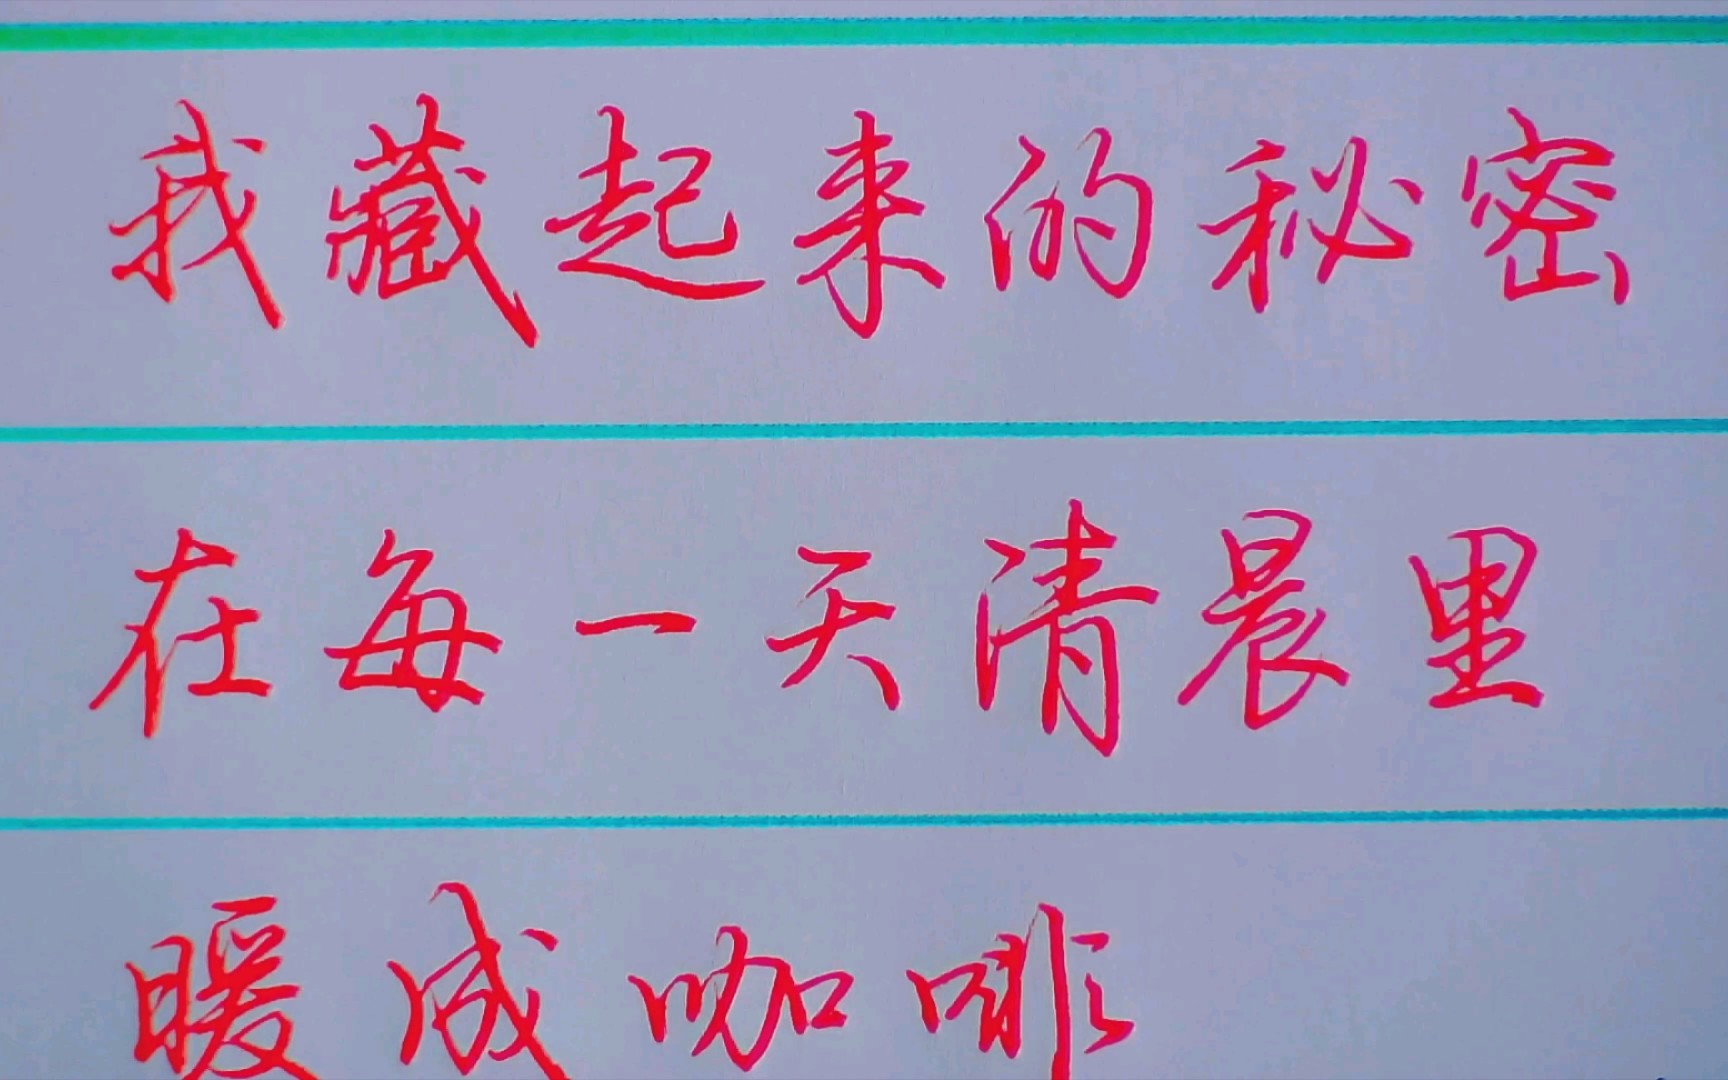 我藏起来的秘密
在每一天清晨里
暖成咖啡